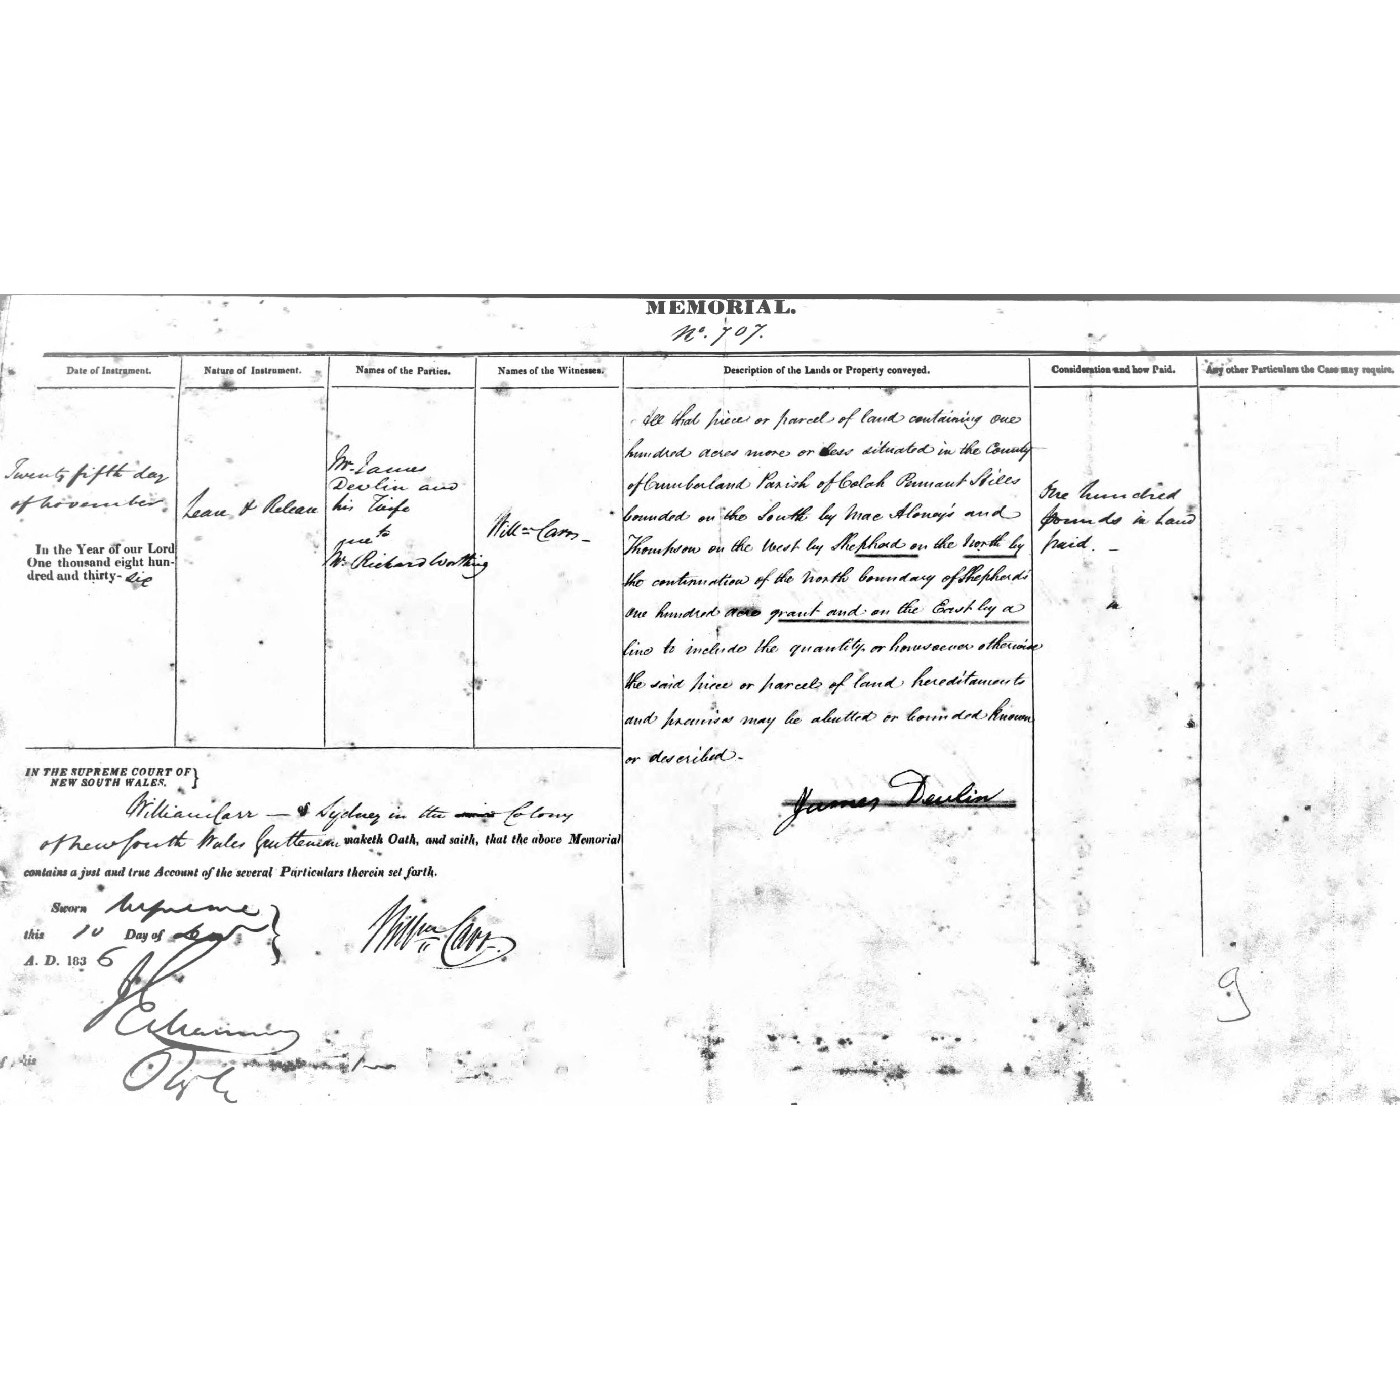 MEMORIAL.
No. 707.
Date of Instrument.
Nature of Instrument.
Names of the Parties.
Names of the Witnesses.
Description of the Lands or Property conveyed.
Consideration and how Paid.
Any other Particulars the Case may require.
Twenty fifth day
of November
In the Year of our Lord
One thousand eight hun-
dred and thirty- six
Lease & Release
Mr. James
Devlin and
his Wife
to
Mr. Richard Worthing
Willm Carr -
All that piece or parcel of land containing one
hundred acres more or less situated in the County
of Cumberland Parish of Colah Pennant Hills
bounded on the South by Mac Aloney's and
Thompson on the West by Shepherd on the North by
the continuation of the North boundary of Shepherds
one hundred acre grant and on the East by a
line to include the quantity or howsoever otherwise
the said piece or parcel of land hereditaments
and premises may be abutted or bounded known
or described -
James Devlin
One hundred
pounds in hand
paid. -
IN THE SUPREME COURT OF }
NEW SOUTH WALES.
William Carr - of Sydney in the Colony
of New South Wales Gentleman maketh Oath, and saith, that the above Memorial
contains a just and true Account of the several Particulars therein set forth.
Sworn
this 10 Day of
A. D. 183 6
Willm Carr.
9